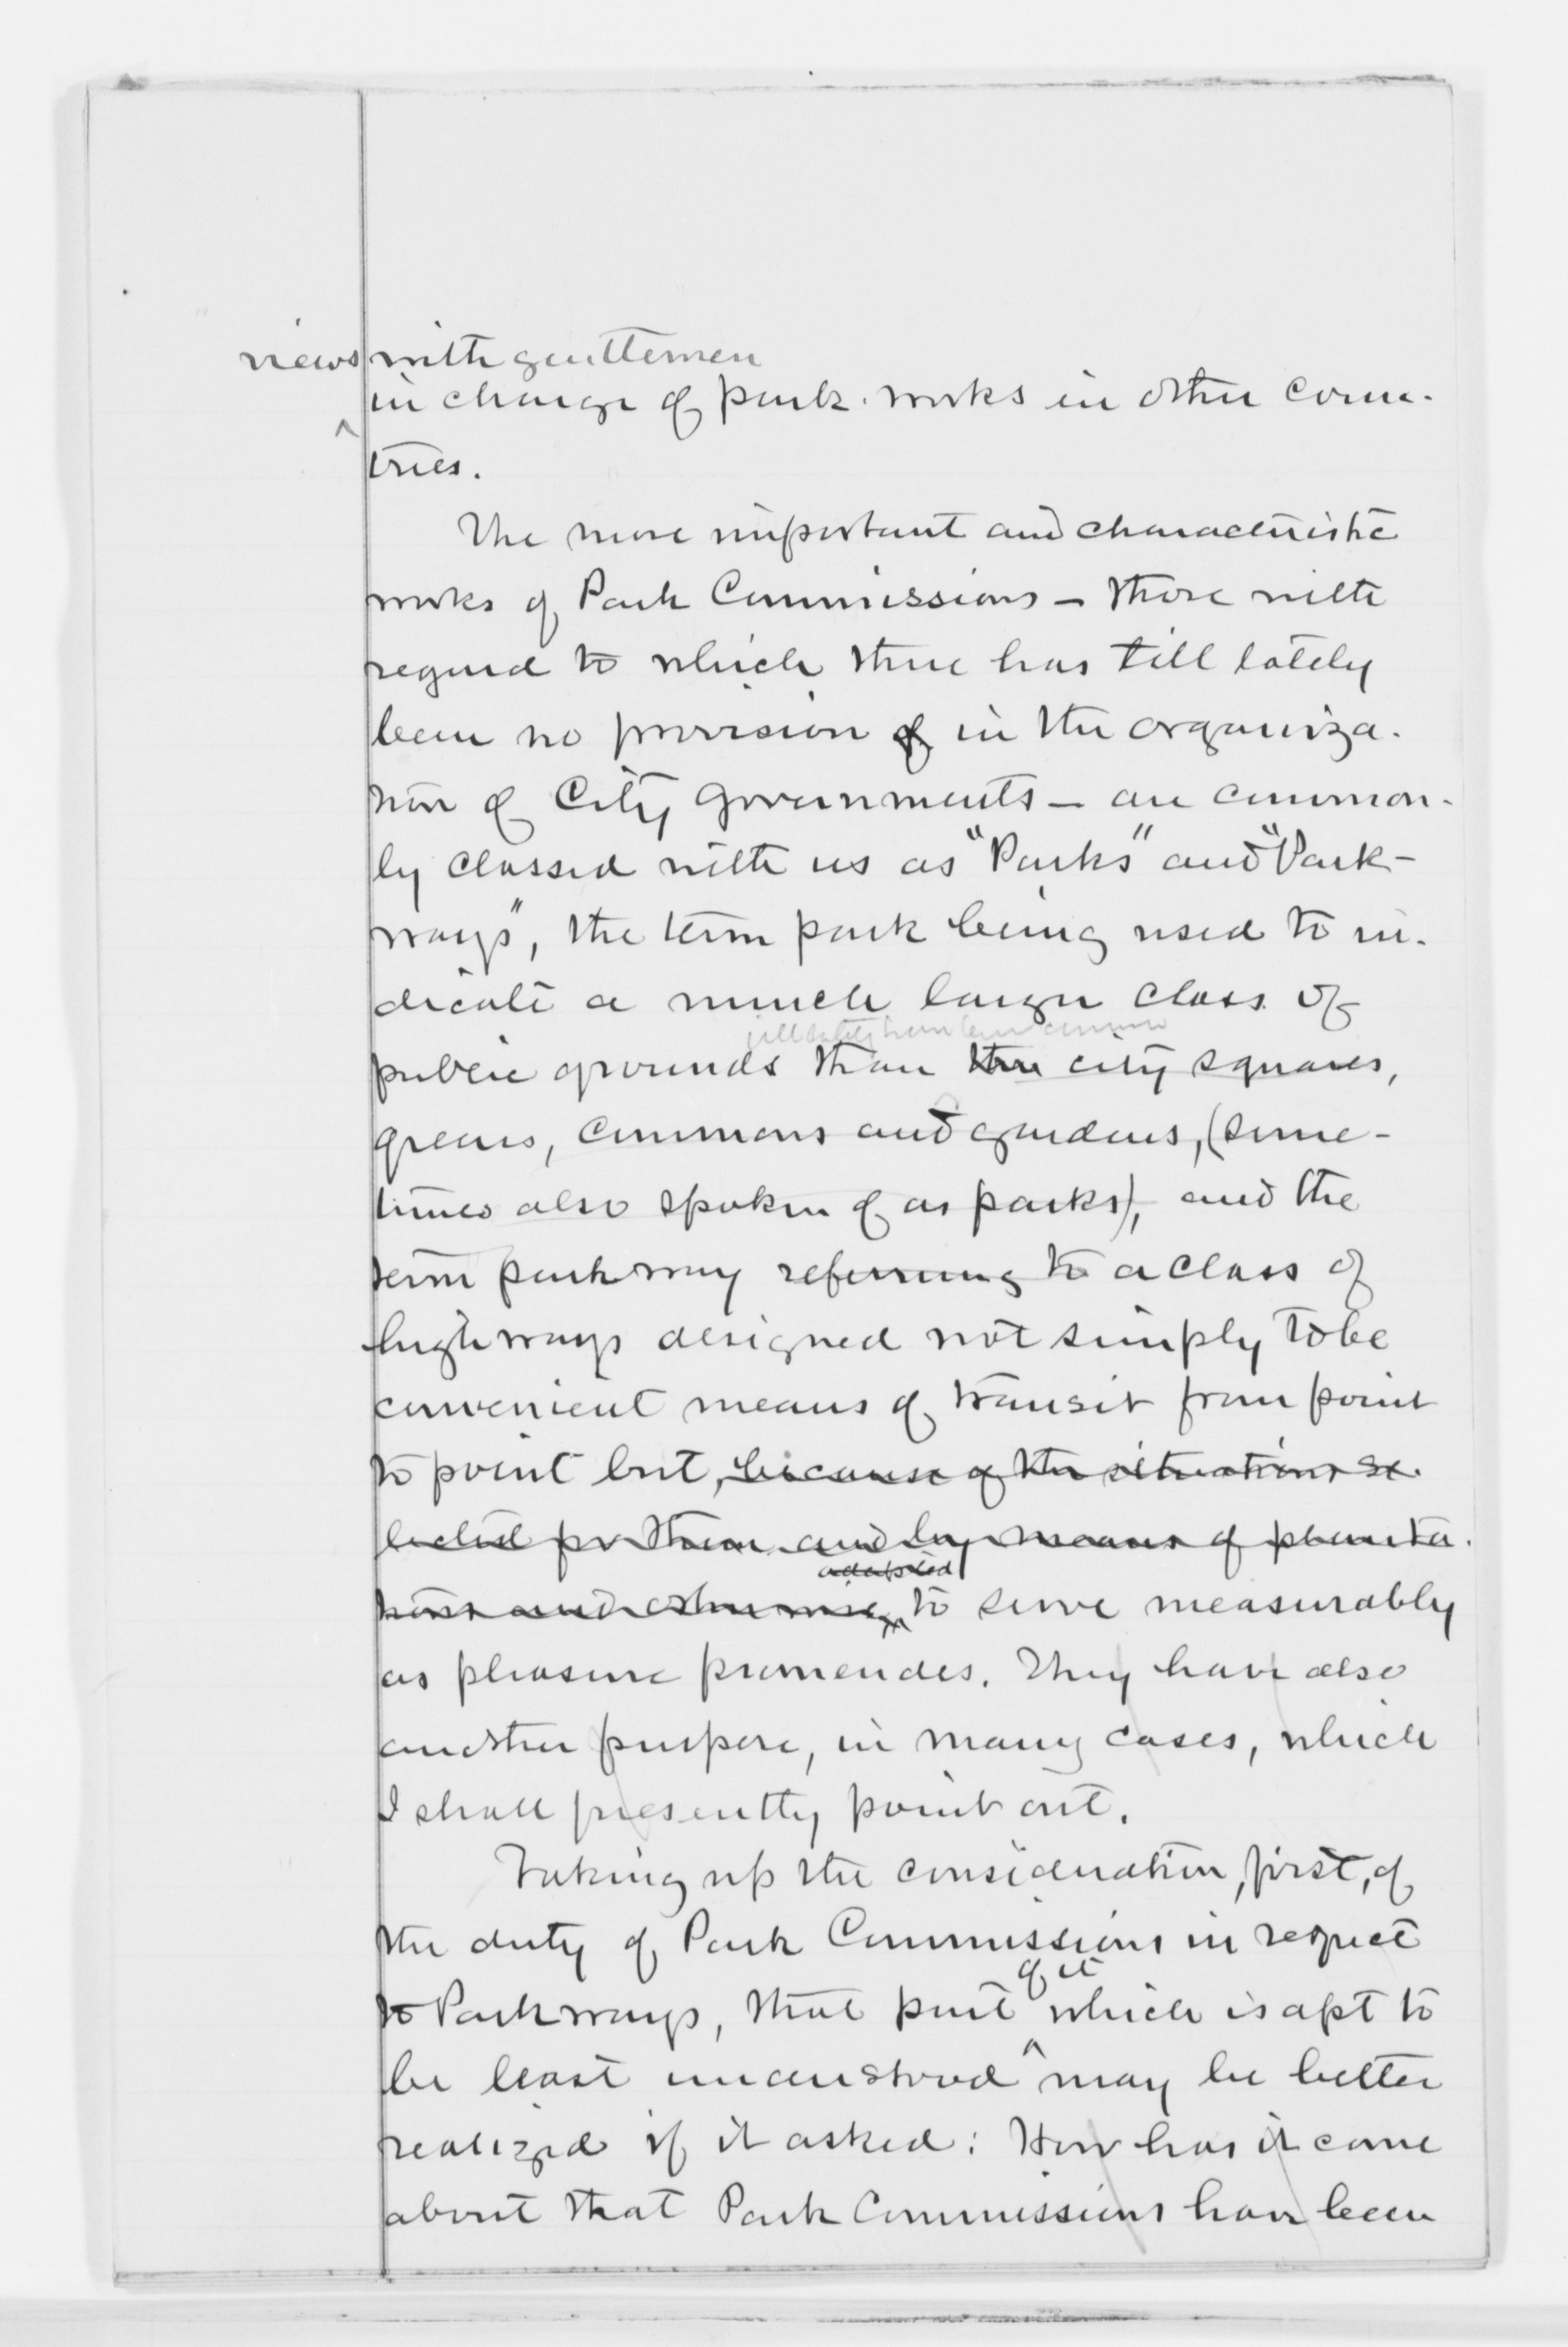 views with gentlemen
in charge of park works in other coun-
tries.
The more important and characteristic
works of Park Commissions – those with
regard to which there has till lately
been no provision of in the organiza-
tion of City Governments – are common-
ly classed with us as "Parks" and "Park-
ways", the term park being used to in-
dicate a much larger class of
till lately have been common
public grounds than the city squares,
greens, commons and gardens, (some-
times also spoken of as parks), and the
term parkway referring to a class of
highways designed not simply to be
convenient means of transit from point
to point but, because of the situations se-
lected for them and by means of planta-
tions and otherwise, adapted to serve measurably
as pleasure promendes. They have also
another purpose, in many cases, which
I shall presently point out.
Taking up the consideration, first, of
the duty of Park Commissions in respect
to Parkways, that part of it which is apt to
be least understood may be better
realized if it asked: How has it come
about that Park Commissions have been